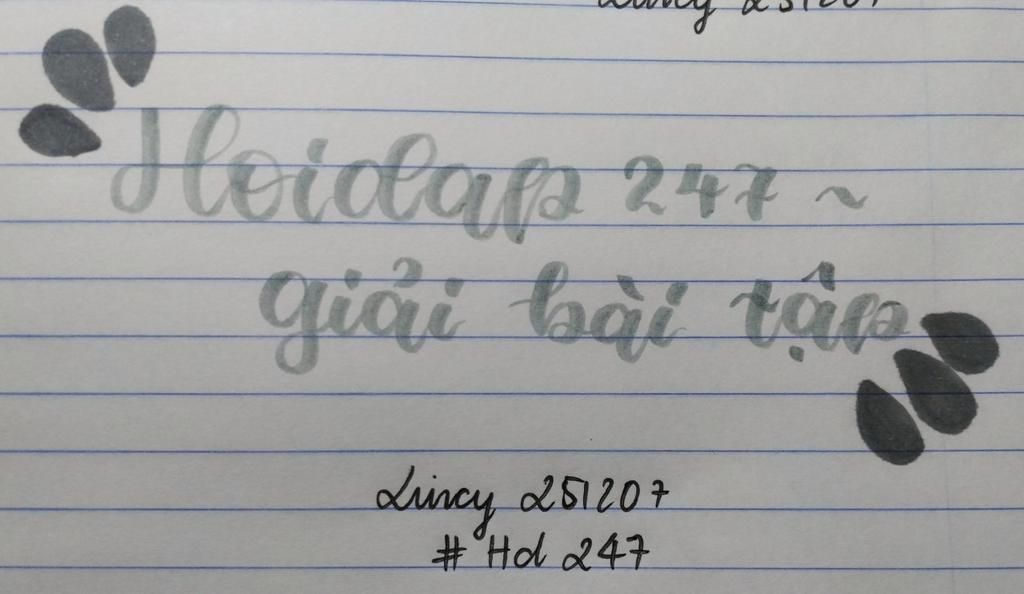 Lincy 251207
Hoidap 247 ~
giải bài tập
Lincy 251207
# Hd 247